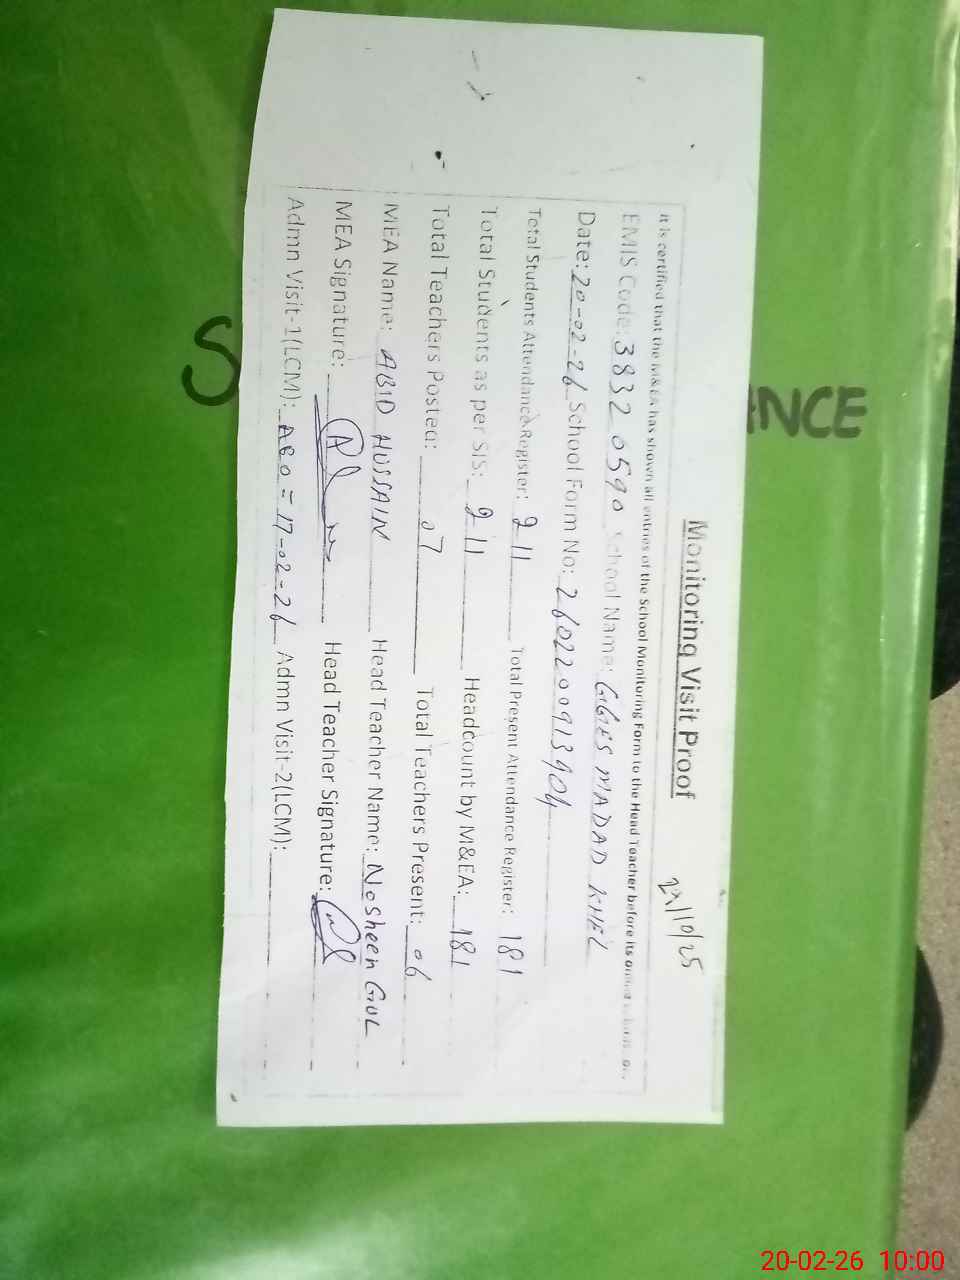 Monitoring Visit Proof
22/10/25
It is certified that the M&EA has shown all entries of the School Monitoring Form to the Head Teacher before its online submission.
EMIS Code: 38320590 School Name: GGES MADAD KHEL
Date: 20-02-26 School Form No: 2602200913904
Total Students Attendance Register: 211 Total Present Attendance Register: 181
Total Students as per SIS: 211 Headcount by M&EA: 181
Total Teachers Posted: 07 Total Teachers Present: 06
MEA Name: ABID HUSSAIN Head Teacher Name: Nosheen GUL
MEA Signature: Head Teacher Signature:
Admn Visit-1(LCM): AEO = 17-02-26 Admn Visit-2(LCM):
S
ANCE
20-02-26 10:00